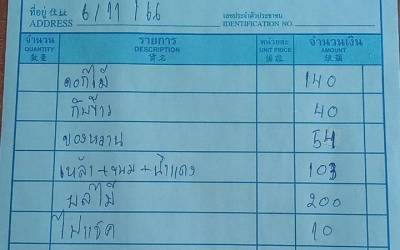 ที่อยู่ 住址 6/11/66 เลขประจำตัวประชาชน
ADDRESS IDENTIFICATION NO.
จำนวน รายการ หน่วยละ จำนวนเงิน
QUANTITY DESCRIPTION UNIT PRICE AMOUNT
數量 貨名 價銀 銀額
ดอกไม้ 140
กับข้าว 40
ของหวาน 54
เหล้า+ขนม+น้ำแดง 103
ผลไม้ 200
ไฟแช็ค 10